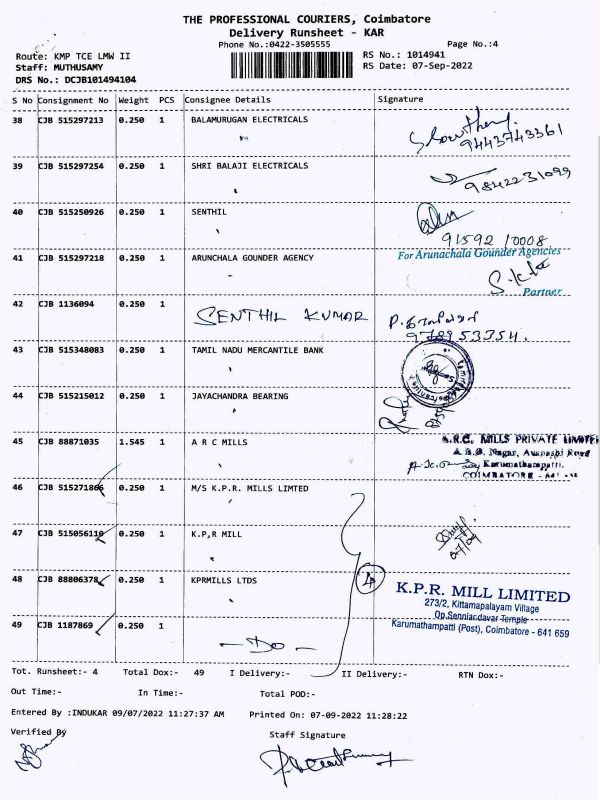 THE PROFESSIONAL COURIERS, Coimbatore
Delivery Runsheet - KAR
Phone No.:0422-3505555 Page No.:4
Route: KMP TCE LMW II RS No.: 1014941
Staff: MUTHUSAMY RS Date: 07-Sep-2022
DRS No.: DCJB101494104
S No Consignment No Weight PCS Consignee Details Signature
38 CJB 515297213 0.250 1 BALAMURUGAN ELECTRICALS
9443743361
39 CJB 515297254 0.250 1 SHRI BALAJI ELECTRICALS
9842231099
40 CJB 515250926 0.250 1 SENTHIL
91592 10008
41 CJB 515297218 0.250 1 ARUNCHALA GOUNDER AGENCY For Arunachala Gounder Agencies
Partner
42 CJB 1136094 0.250 1 SENTHIL KUMAR
43 CJB 515348083 0.250 1 TAMIL NADU MERCANTILE BANK
44 CJB 515215012 0.250 1 JAYACHANDRA BEARING
45 CJB 88871035 1.545 1 A R C MILLS A.R.C. MILLS PRIVATE LIMITED
Karumathampatti.
46 CJB 515271866 0.250 1 M/S K.P.R. MILLS LIMTED
47 CJB 515056110 0.250 1 K.P,R MILL
48 CJB 88806378 0.250 1 KPRMILLS LTDS 4
K.P.R. MILL LIMITED
273/2, Kittamapalayam Village
Op.Senniandavar Temple
Karumathampatti (Post), Coimbatore - 641 659
49 CJB 1187869 0.250 1 - Do -
Tot. Runsheet:- 4 Total Dox:- 49 I Delivery:- II Delivery:- RTN Dox:-
Out Time:- In Time:- Total POD:-
Entered By :INDUKAR 09/07/2022 11:27:37 AM Printed On: 07-09-2022 11:28:22
Verified By Staff Signature